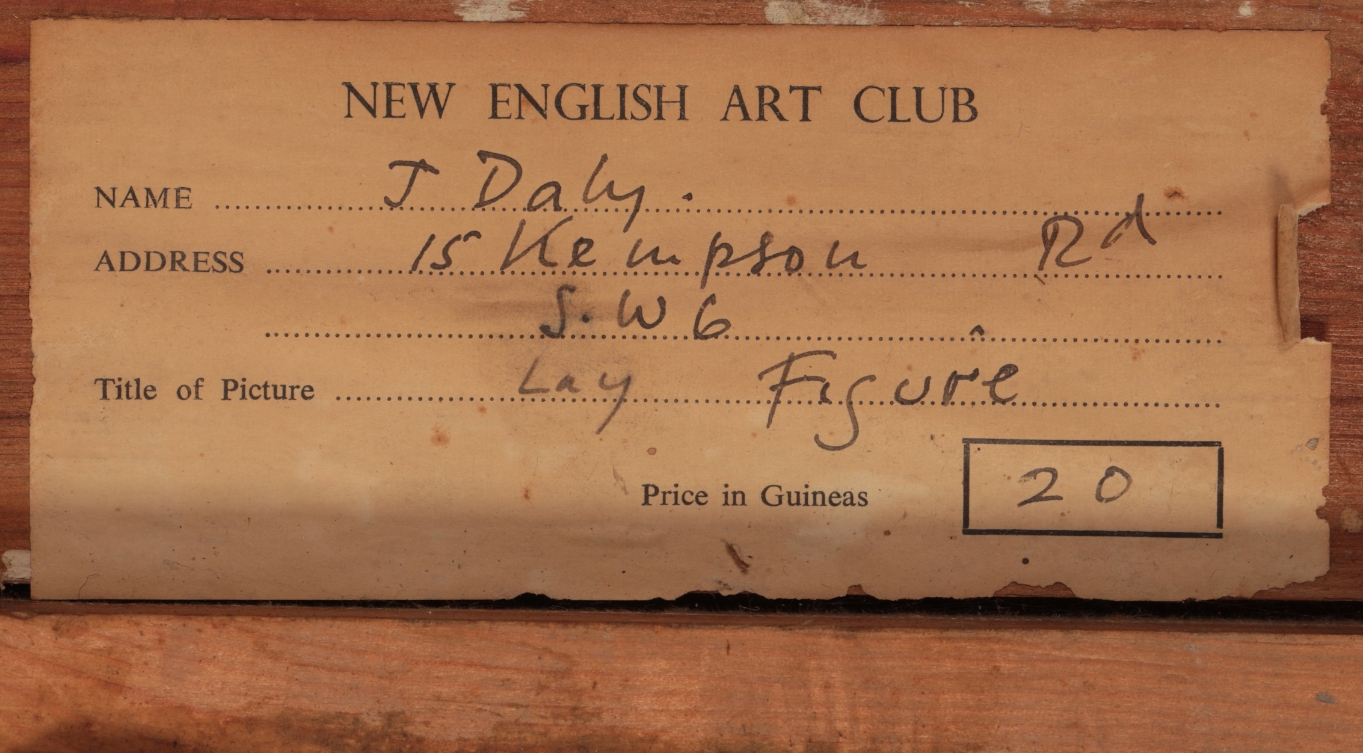 NEW ENGLISH ART CLUB
NAME J Daly.
ADDRESS 15 Kempson Rd
S. W 6
Title of Picture Lay Figure
Price in Guineas 20